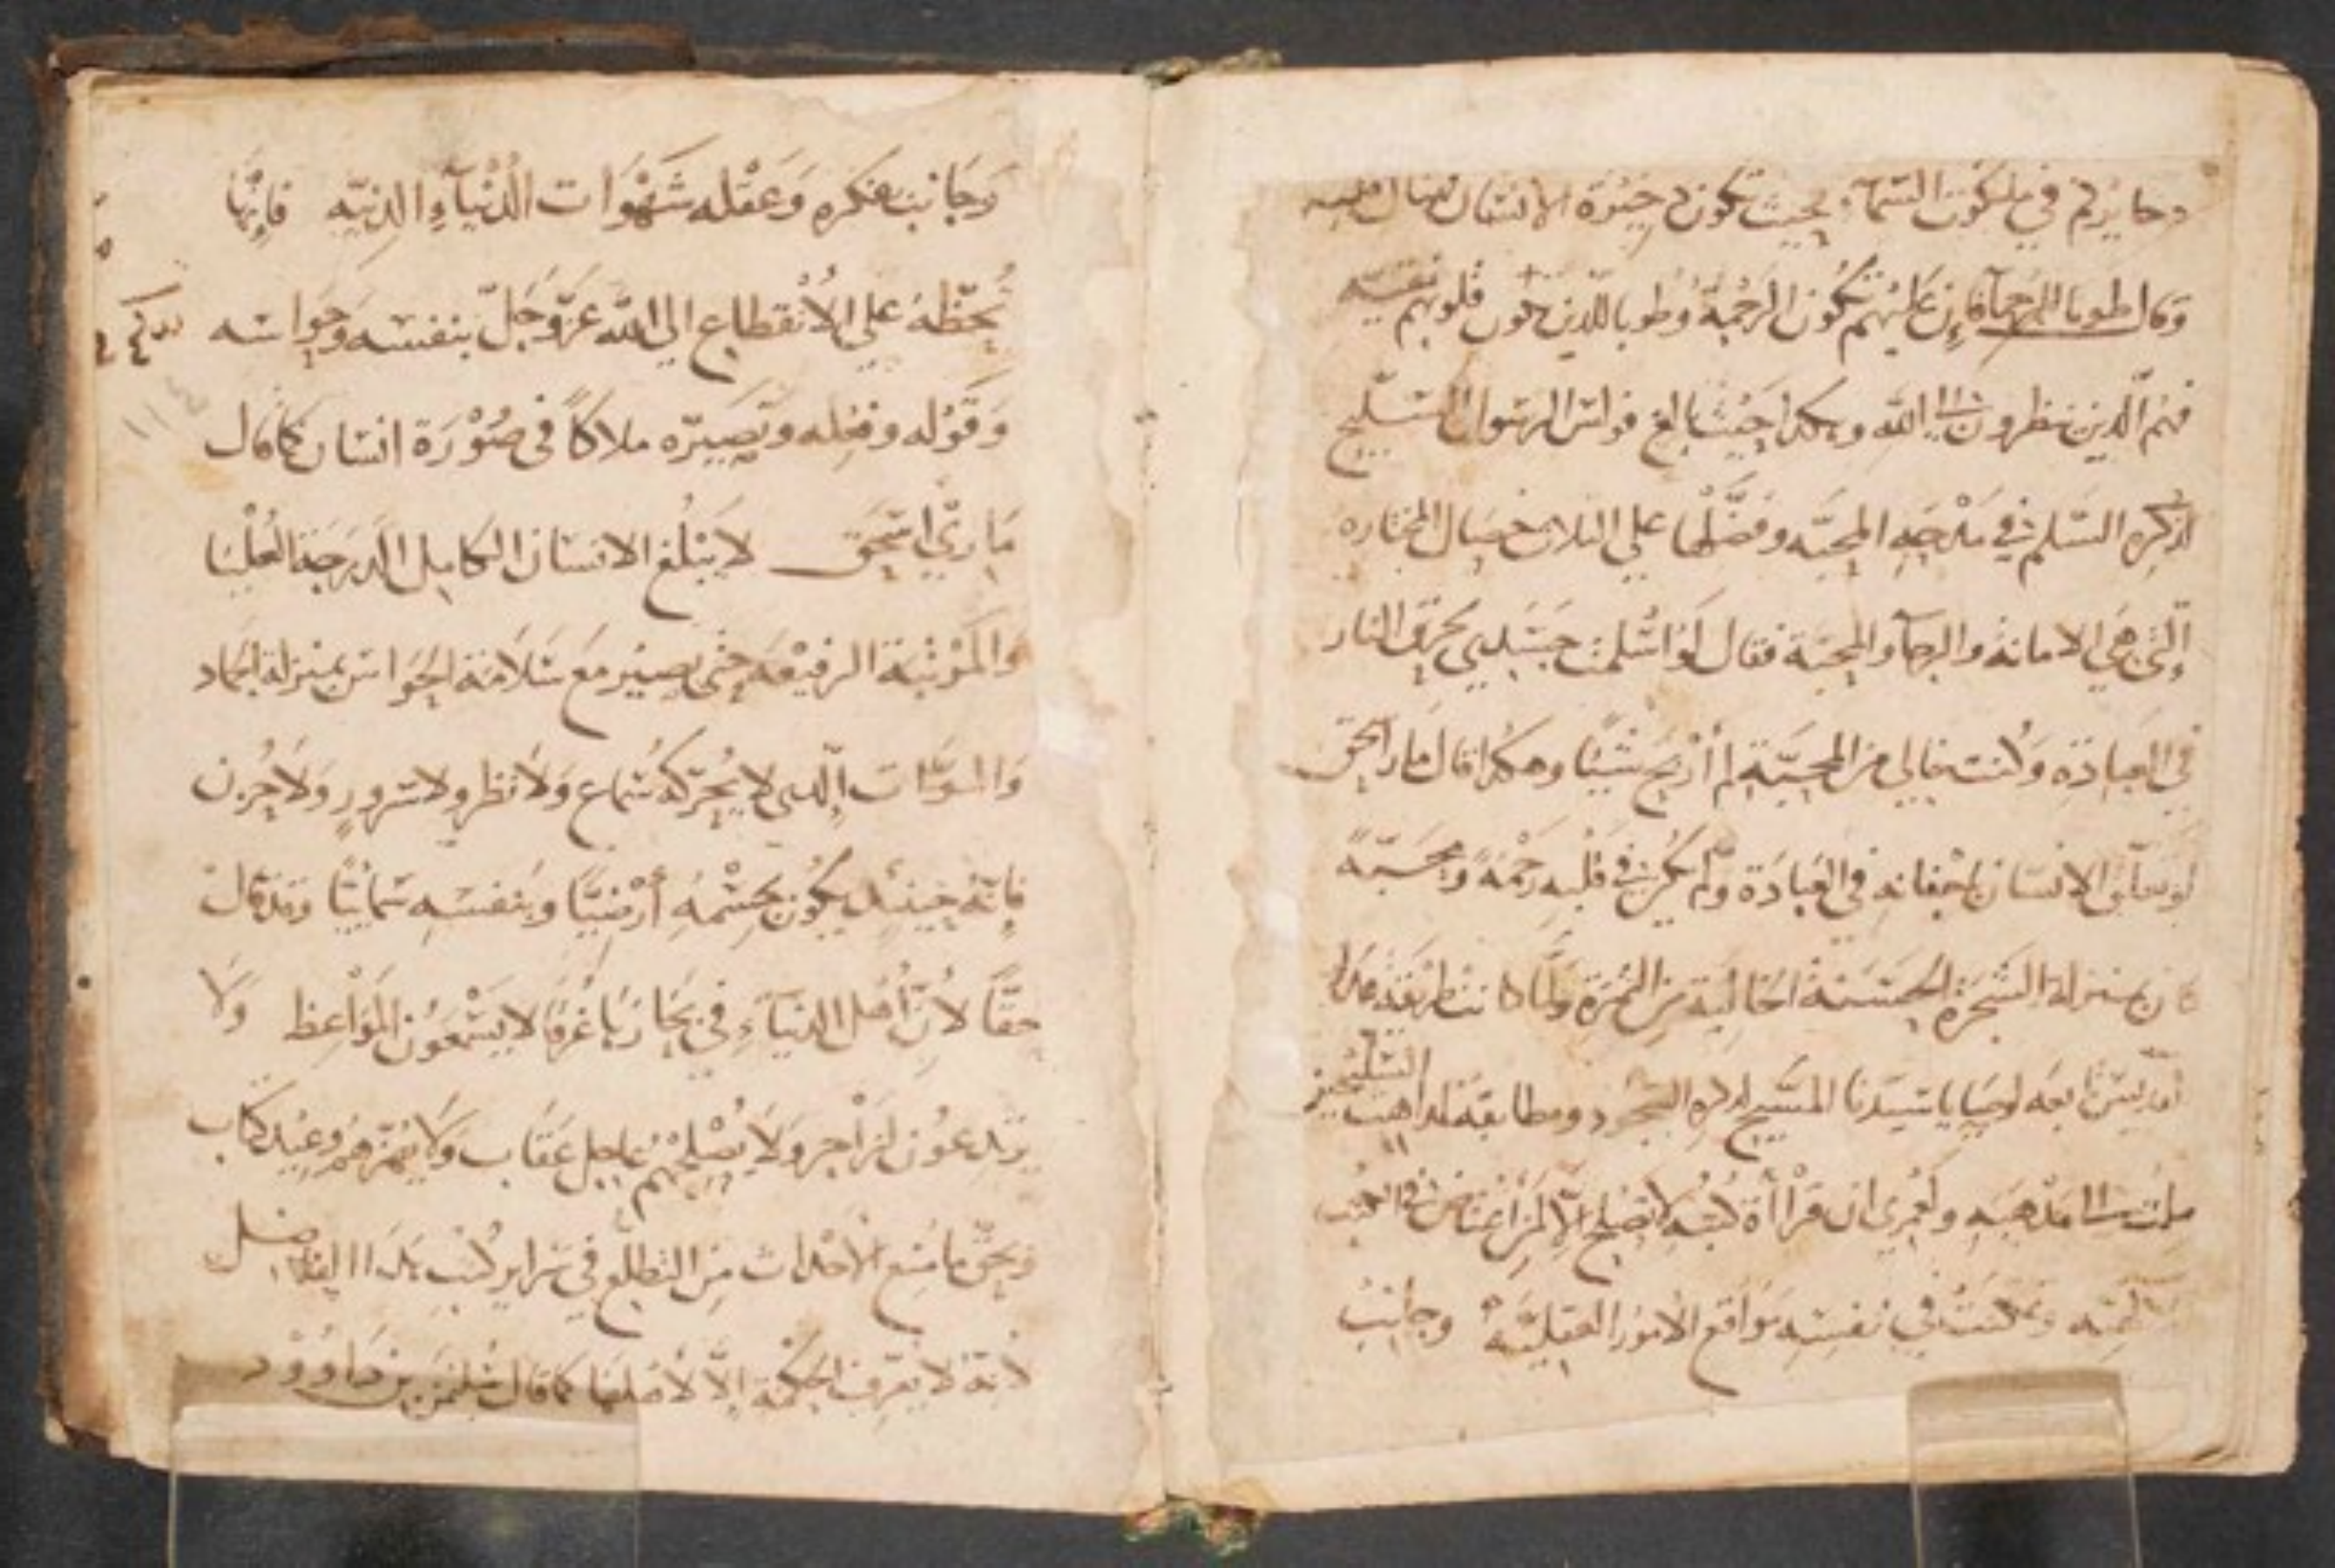 دخايركم في ملكوت السماء بحيث تكون دخيرة الانسان هناك قلبه
وقال طوبا للرحمآ فإن عليهم تكون الرحمة وطوبا للذين قلوبهم نقيه
فهم الذين ينظرون الي الله وهكدا حيث بالغ فولس الرسول السليح
لذكره السلم في مدحه المحبه وفضلها علي الثلات خصال المختاره
التي هي الامانة والرجآ والمحبة فقال لو اسلمت جسدي يحرق النار
في العبادة وكنت خالي من المحبة لم أربح شيئًا وهكدا قال مار اسحق
لو تعلق الانسان باجفانه في العبادة ولم يكن في قلبه رحمة ومحبةً
كان بمنزلة الشجرة الحسنة الخالية من الثمرة ولما كانت طريقة هدا
القديس تابعه لوصايا سيدنا المسيح لدكره السجود ومطابقة لمداهب السليحين
ملت الى مذهبه ولعمري ان قرأأة كتبه لا تصلح إلا لمن أعتا في
وتمكنت في نفسه مواقع الامور العقليّة وجانب
وجانب بفكره وعقله شهوات الدنيآء الدنيّه فانها
تحظه علي الانقطاع الي الله عزّ وجلّ بنفسه وحواسه
وقوله وفعله وتصييره ملاكاً في صورة انسان كما قال
ماري اسحق لا يبلغ الانسان الكامل الدرجة العليا
والمرتبة الرفيعه حتى يصير مع سلامة الحواس بمنزلة الجماد
والموات الدى لا يحركه سماع ولا نظر ولا سرورٍ ولا حزن
فإنه حينئدٍ يكون بجسمه أرضيًّا وبنفسه سمائيًّا وقد قال
حقًّا لأن أهل الدنيآء في بحارنا غرقا لا يسمعون المواعظ ولا
يرتدعون لزاجر ولا يصلحهم عاجل عقاب ولا وعيد كتاب
وبحق ما منع الأحدات من التطلع في سراير كتب هدا الفاضل
لأنه لا يعرف الحكمة إلا لأهلها كما قال سليمن بن داوود